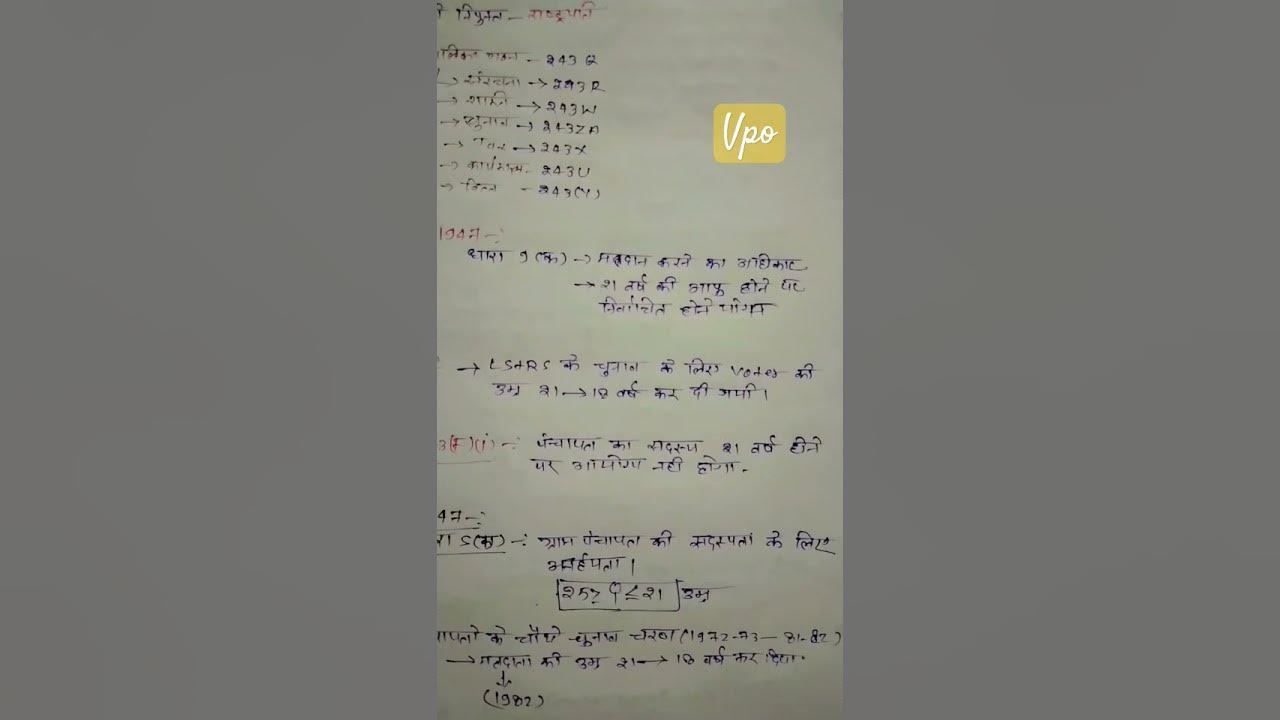 नियुक्त - राष्ट्रपति
गठन - 243 Q
→ संरचना → 243 R
→ शक्ति → 243 W
→ चुनाव → 243 ZA
→ कर → 243 X
→ कार्यकाल - 243 U
→ वित्त - 243 (Y)
Vpo
1947 -:
धारा 9 (क) → मतदान करने का अधिकार
→ 21 वर्ष की आयु होने पर
निर्वाचित होने योग्य
→ LS+RS के चुनाव के लिए Voter की
उम्र 21 → 18 वर्ष कर दी गयी।
(F)(i) -: पंचायत का सदस्य 21 वर्ष होने
पर अयोग्य नही होगा.
47 -:
5(क) -: ग्राम पंचायत की सदस्यता के लिए
अनर्हता।
उम्र
के चौथे चुनाव चरण (1972-73 - 81-82)
→ मतदाता की उम्र 21 → 18 वर्ष कर दिया.
(1982)